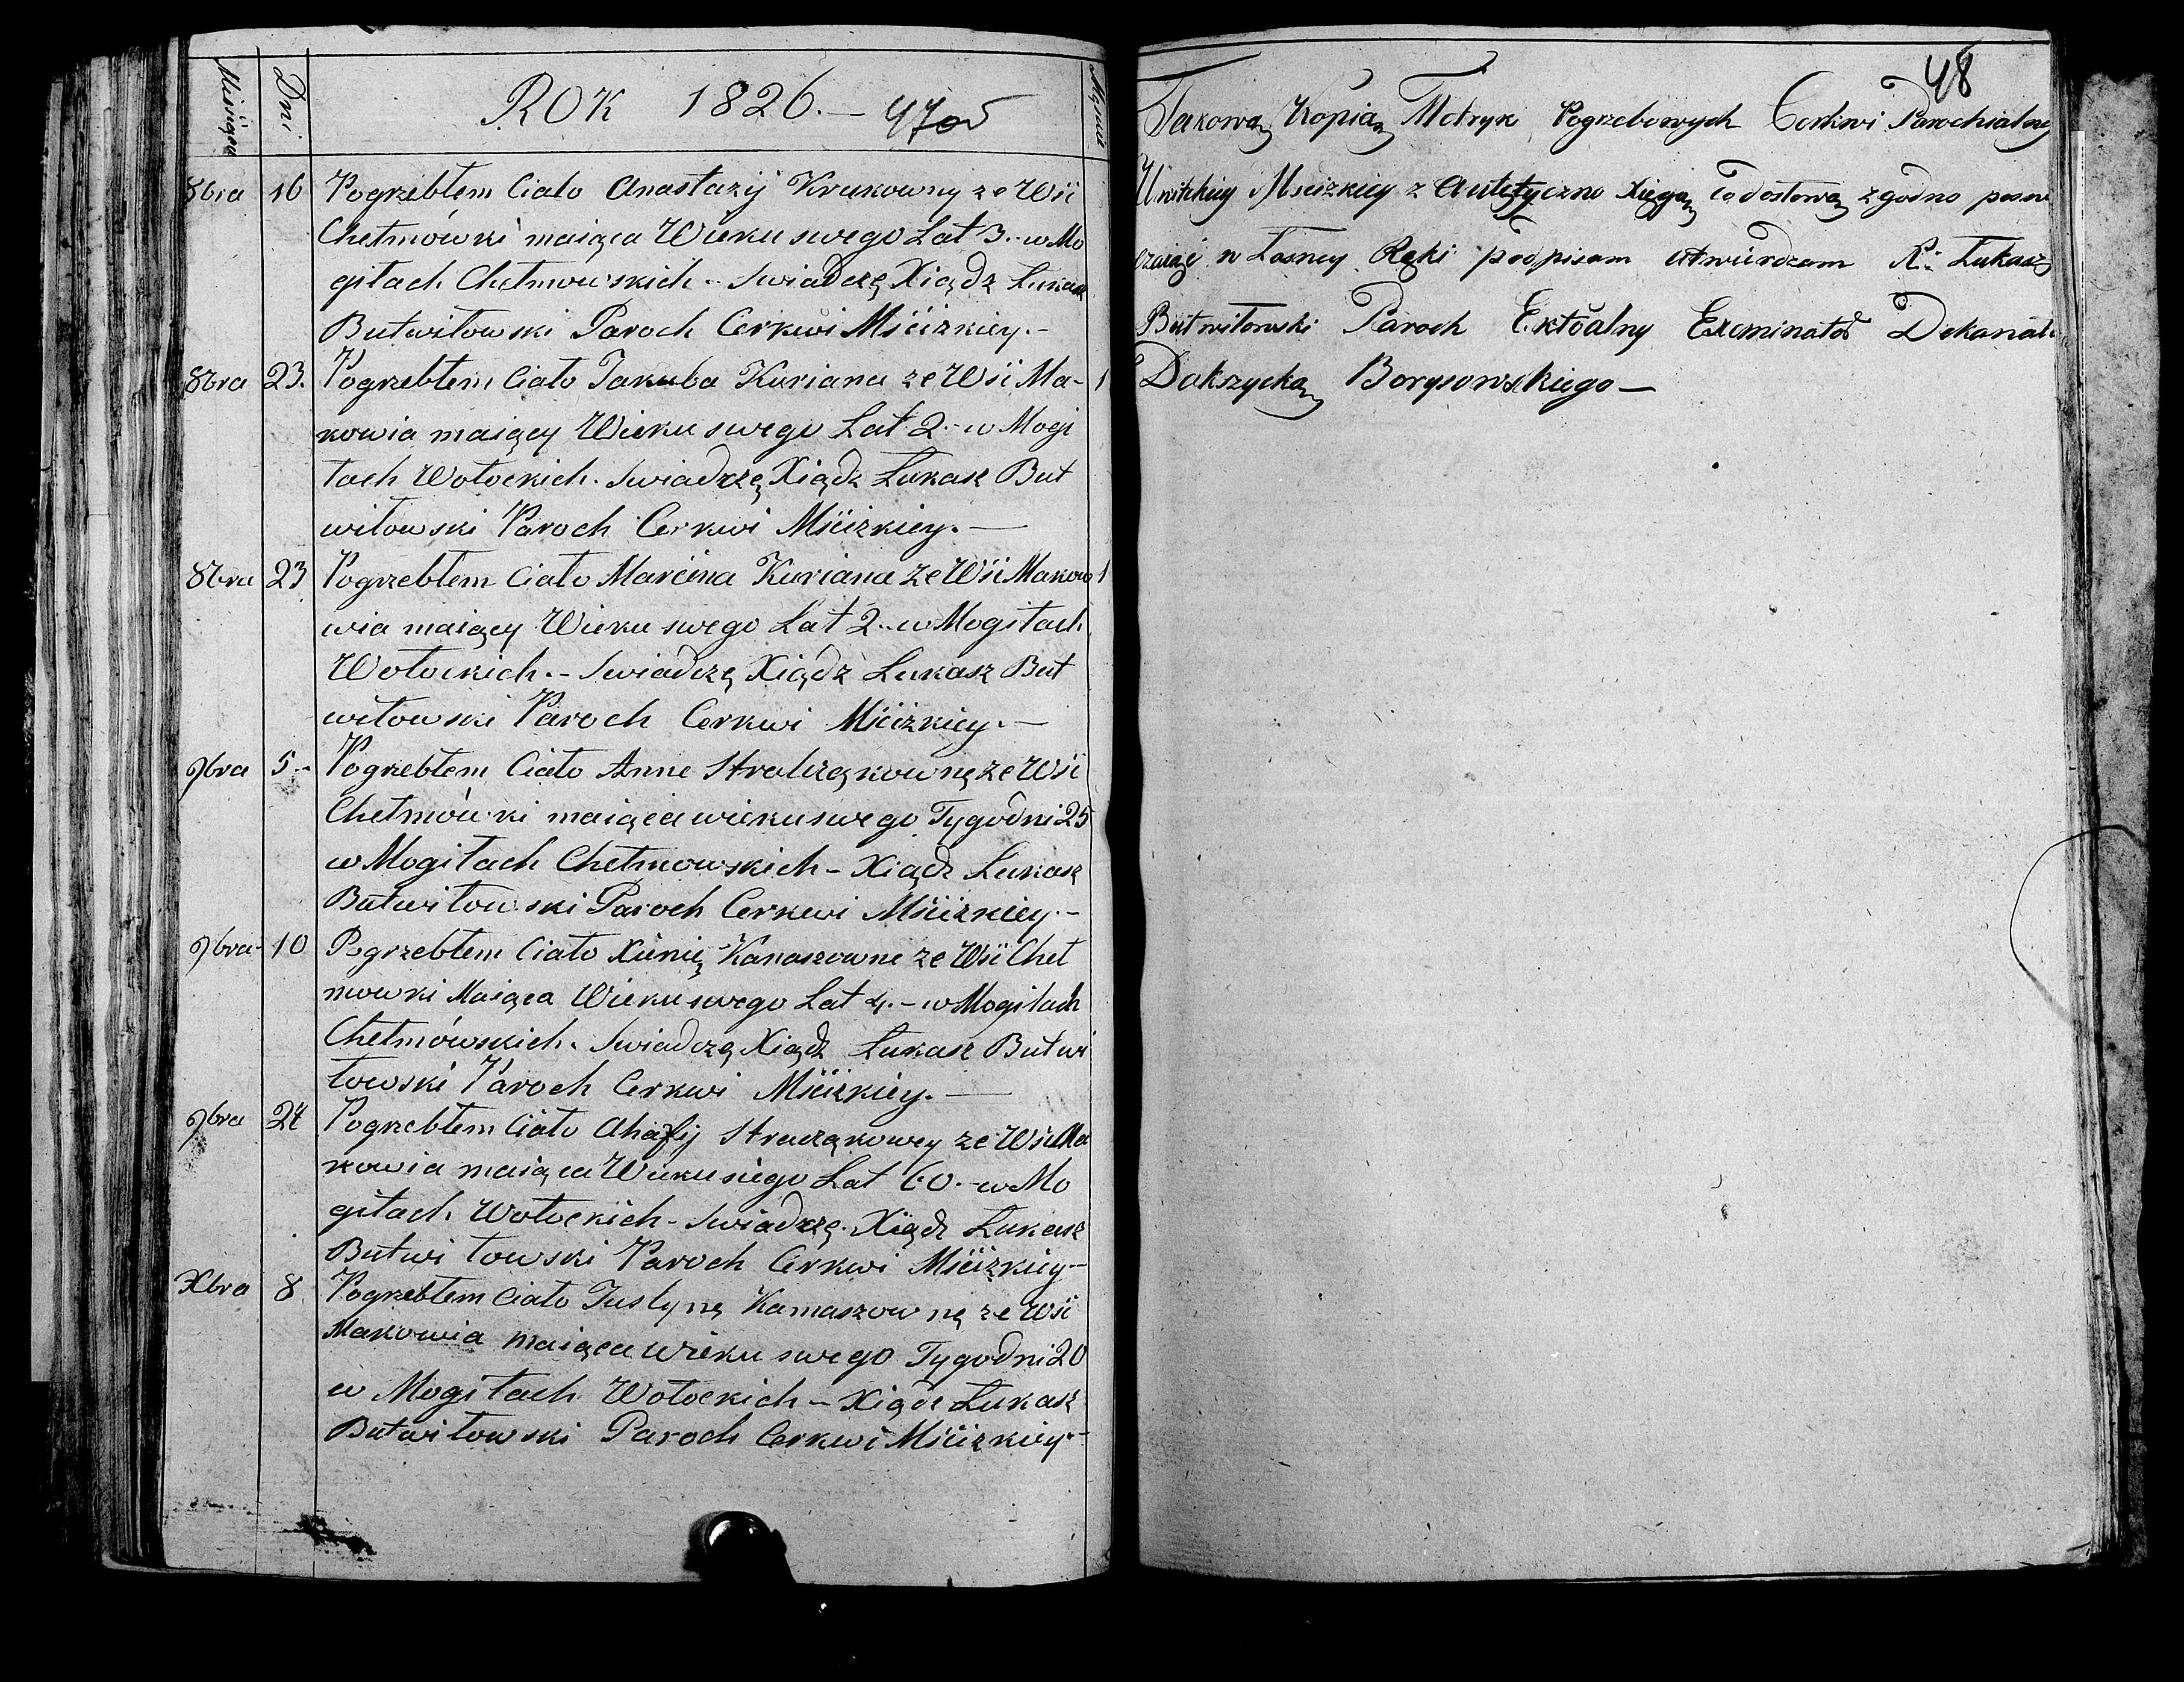 Miesiąca Dni ROK 1826. — 47 od
8bra 16 Pogrzebłem Ciało Anastazij Krukowny ze Wsi
Chełmówki maiąca Wieku swego Lat 3. – w Mo
giłach Chełmowskich – Swiadczę Xiądz Łukasz
Butwiłowski Paroch Cerkwi Mściżkiey. –
8bra 23. Pogrzebłem Ciało Jakuba Kuriana ze Wsi Ma- 1
kowia maiący Wieku swego Lat 2 – w Mogi
łach Wołockich. Swiadczę Xiądz Łukasz But
wiłowski Paroch Cerkwi Mściżkiey. —
8bra 23 Pogrzebłem Ciało Marcina Kuriana ze Wsi Makow 1
wia maiący Wieku swego Lat 2. – w Mogiłach
Wołockich. – Swiadczę Xiądz Łukasz But
wiłowski Paroch Cerkwi Mściżkiey. —
9bra 5. – Pogrzebłem Ciało Anne ze Wsi
Chełmówki maiąca wieku swego Tygodni 25
w Mogiłach Chełmowskich – Xiądz Łukasz
Butwiłowski Paroch Cerkwi Mściżkiey. –
9bra – 10 Pogrzebłem Ciało Xienię Kanaszowne ze Wsi Cheł
mowki Maiąca Wieku swego Lat 4. – w Mogiłach
Chełmówskich. Swiadczę Xiądz Łukasz Butwi
łowski Paroch Cerkwi Mściżkiey. —
9bra 24 Pogrzebłem Ciało Ahafij Stracząkowey ze Wsi Ma
kowia maiąca Wieku swego Lat 60. – w Mo
giłach Wołockich – Swiadczę. Xiądz Łukasz
Butwiłowski Paroch Cerkwi Mściżkiey –
Xbra 8 Pogrzebłem Ciało Justynę Kamaszownę ze Wsi
Makowia maiąca wieku swego Tygodni 20
w Mogiłach Wołockich – Xiądz Łukasz
Butwiłowski Paroch Cerkwi Mściżkiey. –
48
Takową Kopią Metryk Pogrzebowych Cerkwi Parochialney
Unitckiey Mscizkiey z Autętyczno Xięgą Co dosłowa zgodno posw
czaiąc w łasney Ręki podpisam utwierdzam X. Łukasz
Butwiłowski Paroch Exminator Dekanatu
Dokszycka Borysowskiego —